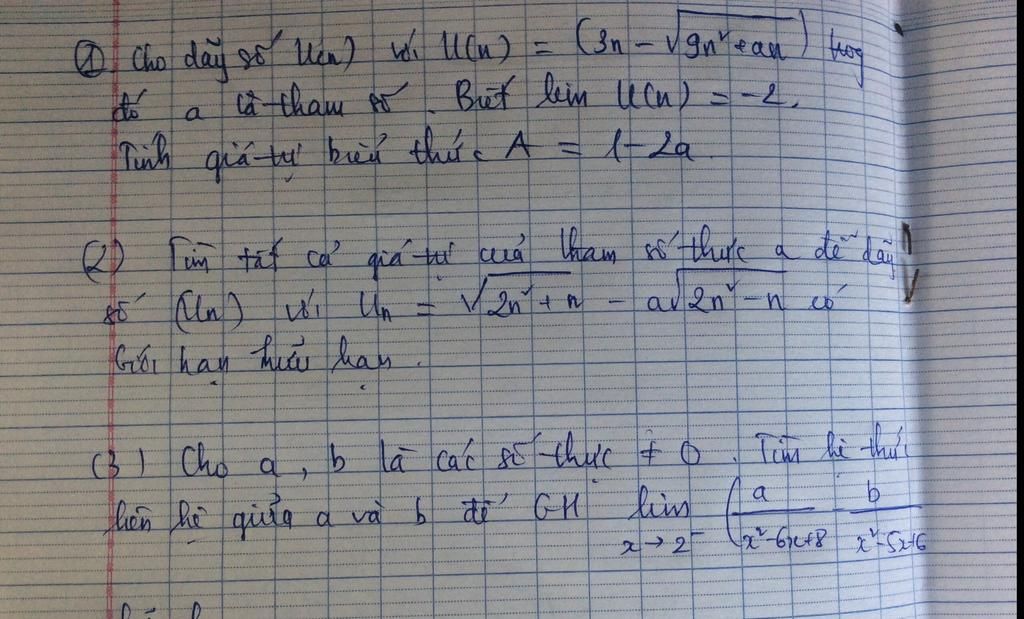 ① Cho dãy số U(n) với U(n) = (3n - √9n² + an) trog
đó a là tham số. Biết lim U(n) = -2.
Tính giá trị biểu thức A = 1 - 2a.
(2) Tìm tất cả giá trị cuả tham số thực a để dãy
số (Un) với Un = √2n² + n - a√2n² - n có
Giới hạn hữu hạn.
(3) Cho a, b là các số thực ≠ 0. Tìm hệ thức
liên hệ giữa a và b để GH lim x→2⁻ (a/x²-6x+8 - b/x²-5x+6